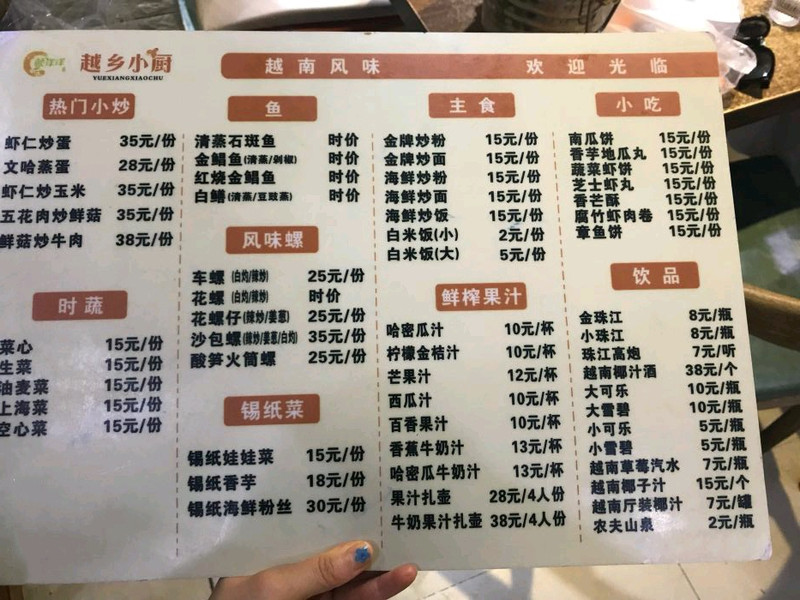 越乡小厨
YUEXIANGXIAOCHU
越南风味 欢迎光临
热门小炒
虾仁炒蛋 35元/份
文哈蒸蛋 28元/份
虾仁炒玉米 35元/份
五花肉炒鲜菇 35元/份
鲜菇炒牛肉 38元/份
时蔬
菜心 15元/份
生菜 15元/份
油麦菜 15元/份
上海菜 15元/份
空心菜 15元/份
鱼
清蒸石斑鱼 时价
金鲳鱼(清蒸/剁椒) 时价
红烧金鲳鱼 时价
白鳝(清蒸/豆豉蒸) 时价
风味螺
车螺(白灼/辣炒) 25元/份
花螺(白灼/辣炒) 时价
花螺仔(辣炒/姜葱) 25元/份
沙包螺(辣炒/姜葱/白灼) 35元/份
酸笋火筒螺 25元/份
锡纸菜
锡纸娃娃菜 15元/份
锡纸香芋 18元/份
锡纸海鲜粉丝 30元/份
主食
金牌炒粉 15元/份
金牌炒面 15元/份
海鲜炒粉 15元/份
海鲜炒面 15元/份
海鲜炒饭 15元/份
白米饭(小) 2元/份
白米饭(大) 5元/份
鲜榨果汁
哈密瓜汁 10元/杯
柠檬金桔汁 10元/杯
芒果汁 12元/杯
西瓜汁 10元/杯
百香果汁 10元/杯
香蕉牛奶汁 13元/杯
哈密瓜牛奶汁 13元/杯
果汁扎壶 28元/4人份
牛奶果汁扎壶 38元/4人份
小吃
南瓜饼 15元/份
香芋地瓜丸 15元/份
蔬菜虾饼 15元/份
芝士虾丸 15元/份
香芒酥 15元/份
腐竹虾肉卷 15元/份
章鱼饼 15元/份
饮品
金珠江 8元/瓶
小珠江 8元/瓶
珠江高炮 7元/听
越南椰汁酒 38元/个
大可乐 10元/瓶
大雪碧 10元/瓶
小可乐 5元/瓶
小雪碧 5元/瓶
越南草莓汽水 7元/瓶
越南椰子汁 15元/个
越南厅装椰汁 7元/罐
农夫山泉 2元/瓶